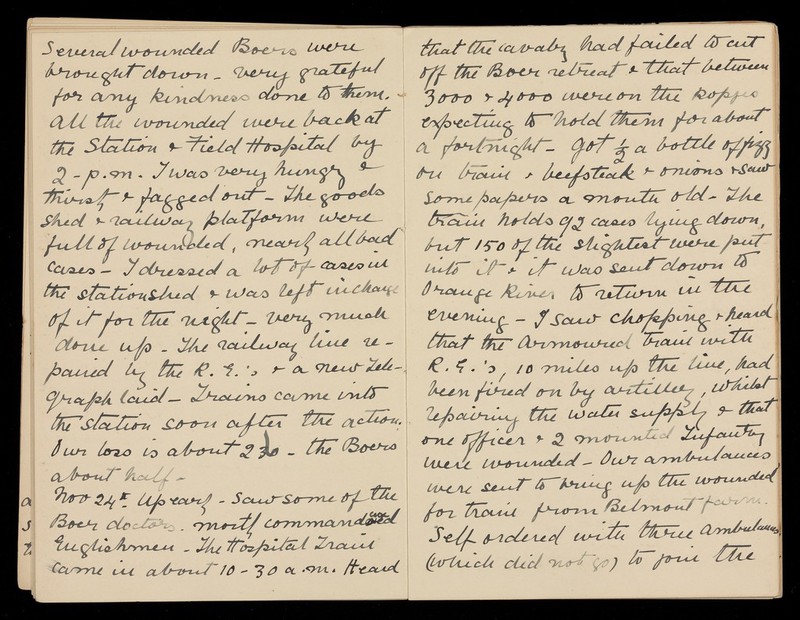 Several wounded Boers were
brought down - very grateful
for any kindness done to them. -
All the wounded were back at
the Station & Field Hospital by
2 - p.m. I was very hungry &
thirsty & fagged out - The goods
shed & railway platform were
full of wounded, nearly all bad
cases - I dressed a lot of cases in
the stationshed & was left in charge
of it for the night - very much
done up - The railway line re-
paired by the R.E.'s & a new Tele-
graph laid - Trains came into
the station soon after the action.
Our loss is about 230 - the Boers
about half -
Nov 24th. Up early - saw some of the
Boer doctors. mostly commandeered
Englishmen - The Hospital Train
came in about 10-30 a.m. Heard
that the cavalry had failed to cut
off the Boer retreat & that between
3000 & 4000 were on the kopjes
expecting to hold them for about
a fortnight - Got ½ a bottle of fizz
on train & beefsteak & onions & saw
some papers a month old - The
train holds 92 cases lying down,
but 150 of the slightest were put
into it & it was sent down to
Orange River to return in the
evening - I saw Chopping & heard
that the Armoured train with
R.E.'s, 10 miles up the line, had
been fired on by artillery, whilst
repairing the water supply & that
one officer & 2 mounted Infantry
were wounded - Our ambulances
were sent to bring up the wounded
for train from Belmont Farm.
Self ordered with three Ambulances,
(which did not go) to join the
a
s